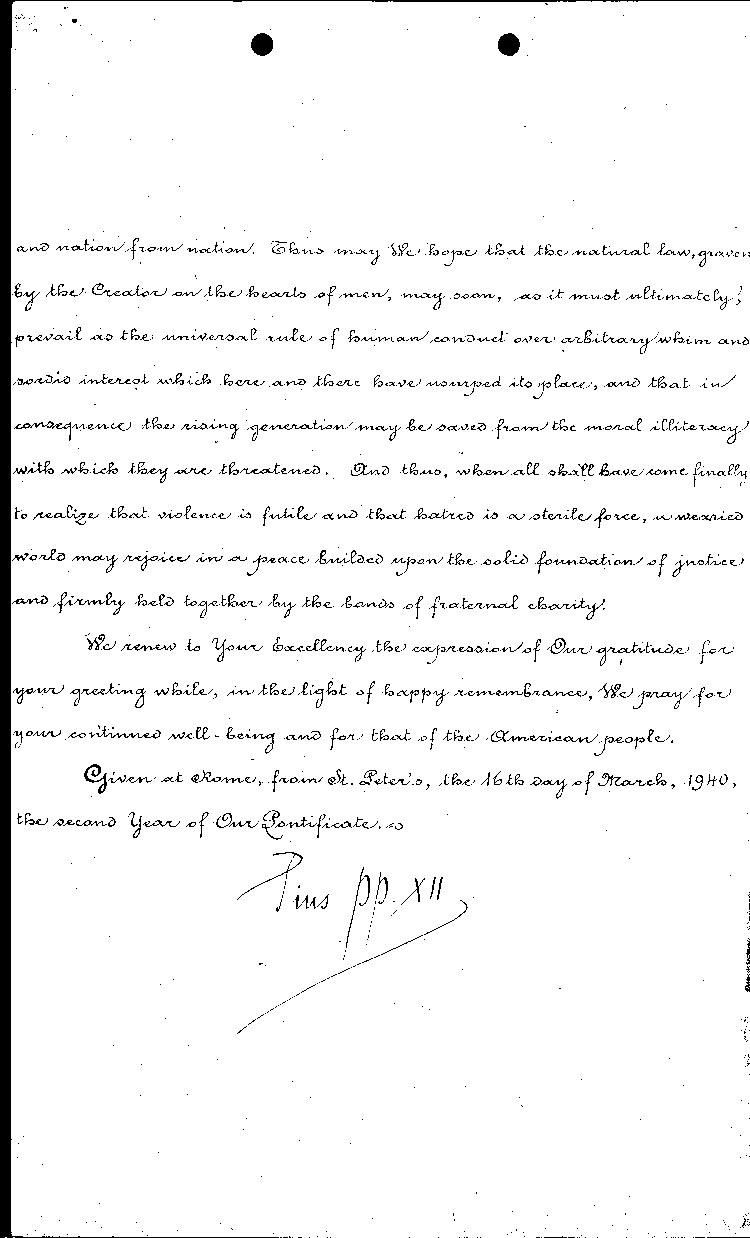 and nation from nation. Thus may We hope that the natural law, graven
by the Creator on the hearts of men, may soon, as it must ultimately,
prevail as the universal rule of human conduct over arbitrary whim and
sordid interest which here and there have usurped its place, and that in
consequence the rising generation may be saved from the moral illiteracy
with which they are threatened. And thus, when all shall have come finally
to realize that violence is futile and that hatred is a sterile force, a wearied
world may rejoice in a peace builded upon the solid foundation of justice
and firmly held together by the bands of fraternal charity.
We renew to Your Excellency the expression of Our gratitude for
your greeting while, in the light of happy remembrance, We pray for
your continued well-being and for that of the American people.
Given at Rome, from St. Peter's, the 16th day of March, 1940,
the second Year of Our Pontificate.
Pius pp. XII